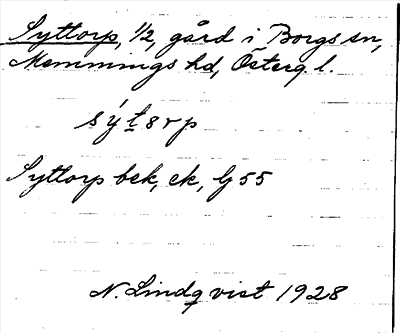 Syttorp, 1/2, gård i Borgs sn,
Memmings hd, Östergl.
sýtorp
Syttorp bek, ek, lj 55
N. Lindqvist 1928